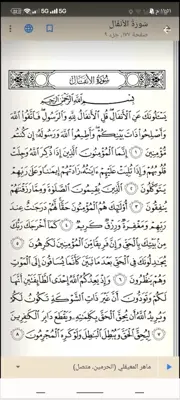 سورة الأنفال
صفحة ١٧٧، جزء ٩
سُورَةُ الأَنفَالِ
بِسْمِ ٱللَّهِ ٱلرَّحْمَٰنِ ٱلرَّحِيمِ
يَسْـَٔلُونَكَ عَنِ ٱلْأَنفَالِ ۖ قُلِ ٱلْأَنفَالُ لِلَّهِ وَٱلرَّسُولِ ۖ فَٱتَّقُوا۟ ٱللَّهَ
وَأَصْلِحُوا۟ ذَاتَ بَيْنِكُمْ ۖ وَأَطِيعُوا۟ ٱللَّهَ وَرَسُولَهُۥٓ إِن كُنتُم
مُّؤْمِنِينَ ١ إِنَّمَا ٱلْمُؤْمِنُونَ ٱلَّذِينَ إِذَا ذُكِرَ ٱللَّهُ وَجِلَتْ
قُلُوبُهُمْ وَإِذَا تُلِيَتْ عَلَيْهِمْ ءَايَٰتُهُۥ زَادَتْهُمْ إِيمَٰنًا وَعَلَىٰ رَبِّهِمْ
يَتَوَكَّلُونَ ٢ ٱلَّذِينَ يُقِيمُونَ ٱلصَّلَوٰةَ وَمِمَّا رَزَقْنَٰهُمْ
يُنفِقُونَ ٣ أُو۟لَٰٓئِكَ هُمُ ٱلْمُؤْمِنُونَ حَقًّا ۚ لَّهُمْ دَرَجَٰتٌ عِندَ
رَبِّهِمْ وَمَغْفِرَةٌ وَرِزْقٌ كَرِيمٌ ٤ كَمَآ أَخْرَجَكَ رَبُّكَ
مِنۢ بَيْتِكَ بِٱلْحَقِّ وَإِنَّ فَرِيقًا مِّنَ ٱلْمُؤْمِنِينَ لَكَٰرِهُونَ ٥
يُجَٰدِلُونَكَ فِى ٱلْحَقِّ بَعْدَ مَا تَبَيَّنَ كَأَنَّمَا يُسَاقُونَ إِلَى ٱلْمَوْتِ
وَهُمْ يَنظُرُونَ ٦ وَإِذْ يَعِدُكُمُ ٱللَّهُ إِحْدَى ٱلطَّآئِفَتَيْنِ أَنَّهَا
لَكُمْ وَتَوَدُّونَ أَنَّ غَيْرَ ذَاتِ ٱلشَّوْكَةِ تَكُونُ لَكُمْ
وَيُرِيدُ ٱللَّهُ أَن يُحِقَّ ٱلْحَقَّ بِكَلِمَٰتِهِۦ وَيَقْطَعَ دَابِرَ ٱلْكَٰفِرِينَ ٧
لِيُحِقَّ ٱلْحَقَّ وَيُبْطِلَ ٱلْبَٰطِلَ وَلَوْ كَرِهَ ٱلْمُجْرِمُونَ ٨
ماهر المعيقلي (الحرمين, متصل)